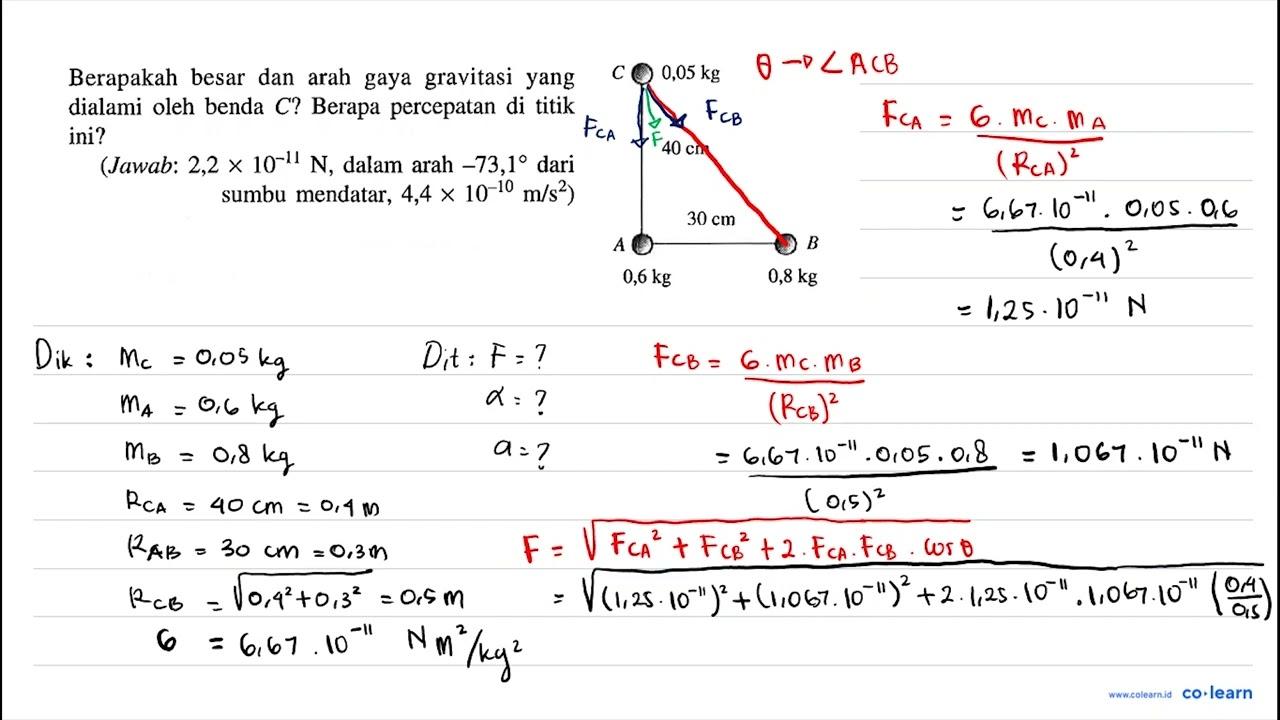 Berapakah besar dan arah gaya gravitasi yang
dialami oleh benda C? Berapa percepatan di titik
ini?
(Jawab: 2,2 × 10⁻¹¹ N, dalam arah –73,1° dari
sumbu mendatar, 4,4 × 10⁻¹⁰ m/s²)
C 0,05 kg
F_CA
F
F_CB
40 cm
30 cm
A
B
0,6 kg
0,8 kg
θ → ∠ ACB
F_CA = G . m_C . m_A / (R_CA)²
= 6,67.10⁻¹¹ . 0,05 . 0,6 / (0,4)²
= 1,25 . 10⁻¹¹ N
Dik : m_C = 0,05 kg
m_A = 0,6 kg
m_B = 0,8 kg
R_CA = 40 cm = 0,4 m
R_AB = 30 cm = 0,3 m
R_CB = √0,4² + 0,3² = 0,5 m
G = 6,67 . 10⁻¹¹ N m²/kg²
Dit : F = ?
α = ?
a = ?
F_CB = G . m_C . m_B / (R_CB)²
= 6,67 . 10⁻¹¹ . 0,05 . 0,8 / (0,5)² = 1,067 . 10⁻¹¹ N
F = √F_CA² + F_CB² + 2 . F_CA . F_CB . cos θ
= √(1,25 . 10⁻¹¹)² + (1,067 . 10⁻¹¹)² + 2 . 1,25 . 10⁻¹¹ . 1,067 . 10⁻¹¹ (0,4/0,5)
www.colearn.id co·learn